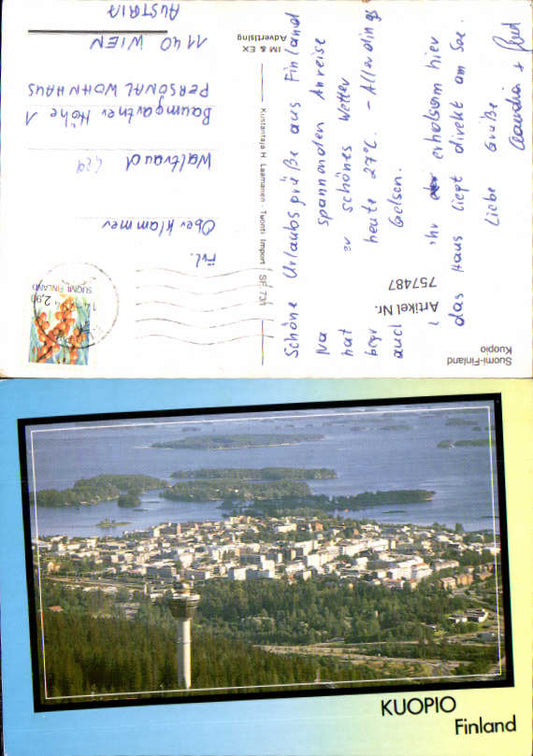 Schöne Urlaubsgrüße aus Finland
Na
hat spannenden Anreise
er schönes Wetter
heute 27°C. - Allerdings
auch Gelsen.
ihr erholsam hier
das Haus liegt direkt am See.
Liebe Grüße
Claudia +
Artikel Nr.
757487
Suomi-Finland
Kuopio
IM & EX
Advertising
Kustantaja H. Laamanen - Twonti Import SF 731
2,90
SUOMI FINLAND
Frl.
Oberklammer
Waltraud
Baumgartner Höhe 1
PERSONALWOHNHAUS
1140 WIEN
AUSTRIA
KUOPIO
Finland